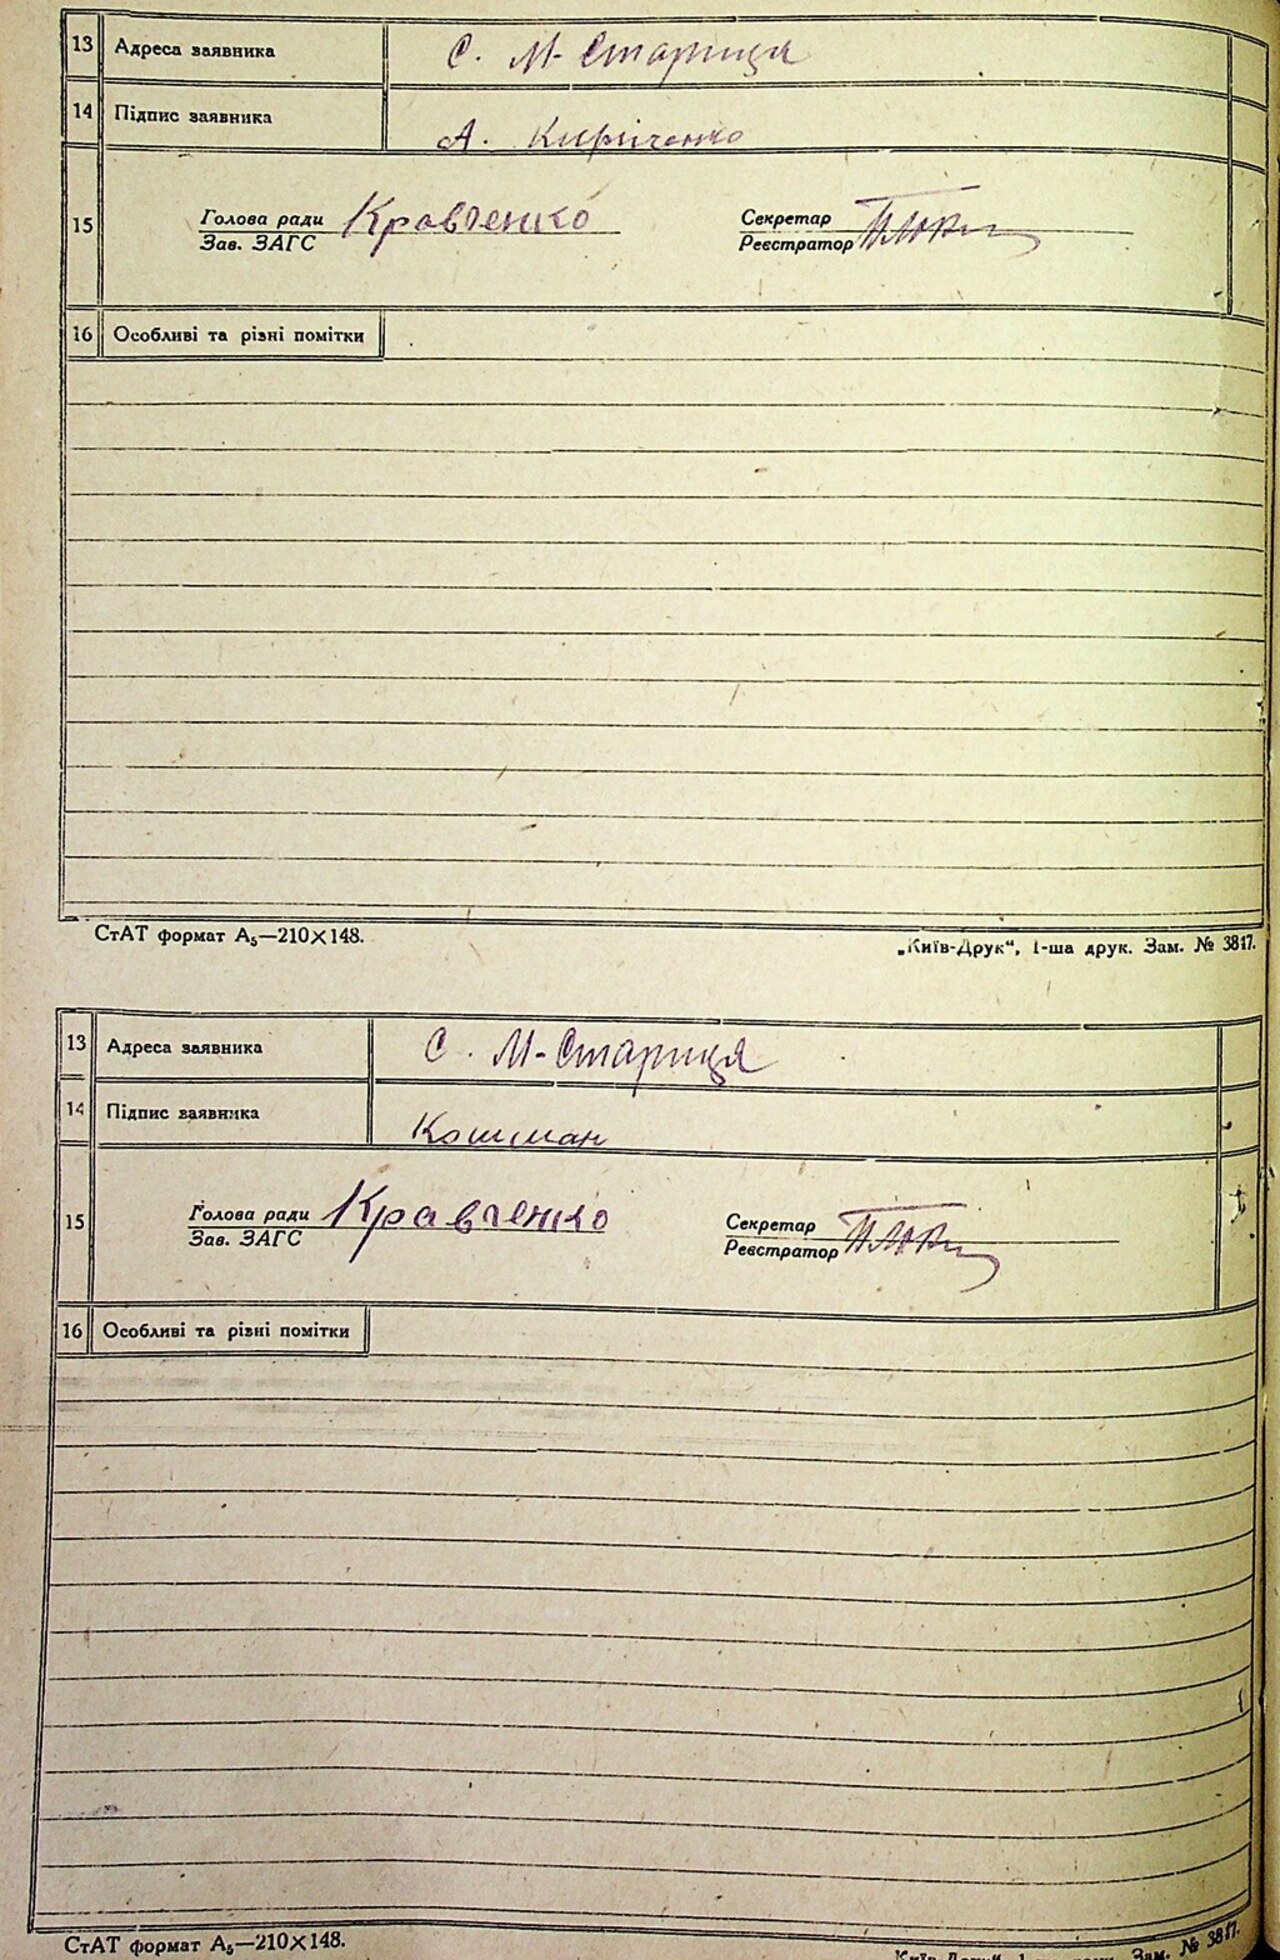 13 Адреса заявника С. М-Стариця
14 Підпис заявника А. Кириченко
15 Голова ради Кравченко Секретар
Зав. ЗАГС Реєстратор
16 Особливі та різні помітки
СтАТ формат А₅—210×148. „Київ-Друк“, 1-ша друк. Зам. № 3817.
13 Адреса заявника С. М-Стариця
14 Підпис заявника Кошман
15 Голова ради Кравченко Секретар
Зав. ЗАГС Реєстратор
16 Особливі та різні помітки
СтАТ формат А₅—210×148. Зам. № 3817.